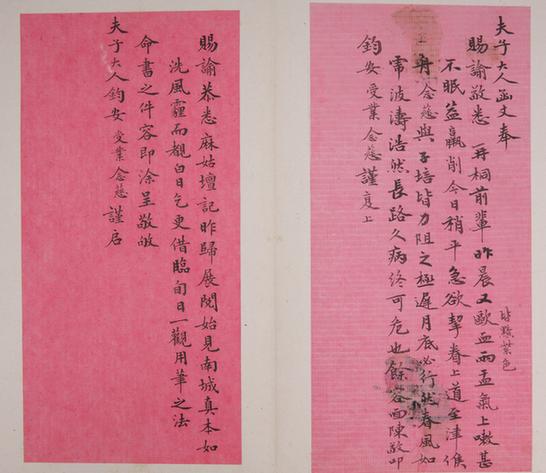 夫子大人函丈奉
賜諭敬悉 再桐前輩昨晨又歐血兩盂氣上嗽甚
皆黯紫色
不眠益羸削今日稍平急欲挈眷上道至津俟
舟念慈與子培皆力阻之極遲月底必行然春風如
雷波濤浩然長路久病終可危也餘容面陳敬叩
鈞安受業念慈謹复上
賜諭恭悉麻姑壇記昨歸展閱始見南城真本如
洗風霾而覩白日乞更借臨旬日一觀用筆之法
命書之件容即涂呈敬敂
夫子大人鈞安受業念慈謹启